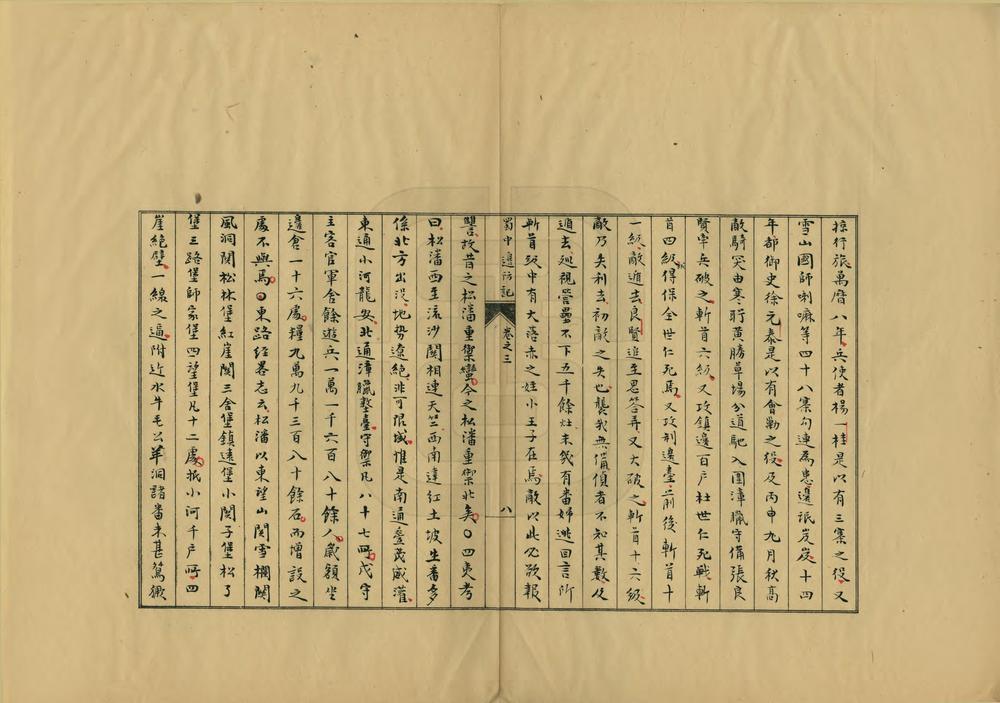 掠行旅萬曆八年兵使者楊一桂是以有三寨之役又
雪山國師喇嘛等四十八寨勾連為患邊氓岌岌十四
年都御史徐元泰是以有會勦之役及丙申九月秋高
敵騎突由寒盻黃勝草場分道馳入圍漳臘守備張良
賢率兵破之斬首六級又攻鎮邊百戶杜世仁死戰斬
首四級得保全世仁死焉又攻制邊臺前後斬首十
一級敵遁去良賢追至思答弄又大破之斬首十六級
敵乃失利去初敵之失也襲我無備偵者不知其數及
遁去廵視營壘不下五千餘灶未幾有番婦逃回言所
斬首級中有大落赤之姪小王子在焉敵以此必欲報
蜀中邊防記 卷之三 八
讐故昔之松潘重禦蠻今之松潘重禦北矣○四夷考
曰松潘西至流沙關相連天竺西南達紅土坡生番多
係北方出沒地勢遼絕非可限域惟是南通疊茂威灌
東通小河龍安北通漳臘墪臺守禦凡八十七所戍守
主客官軍舍餘遊兵一萬一千六百八十餘人歲額坐
邊倉一十六處糧九萬九千三百八十餘石而增設之
處不與焉○東路經畧志云松潘以東望山關雪欄關
風洞關松林堡紅崖關三舍堡鎮遠堡小關子堡松丫
堡三路堡師家堡四望堡凡十二處抵小河千戶所四
崖絕壁一線之逼附近水牛毛公羊洞諸番來甚篤獗